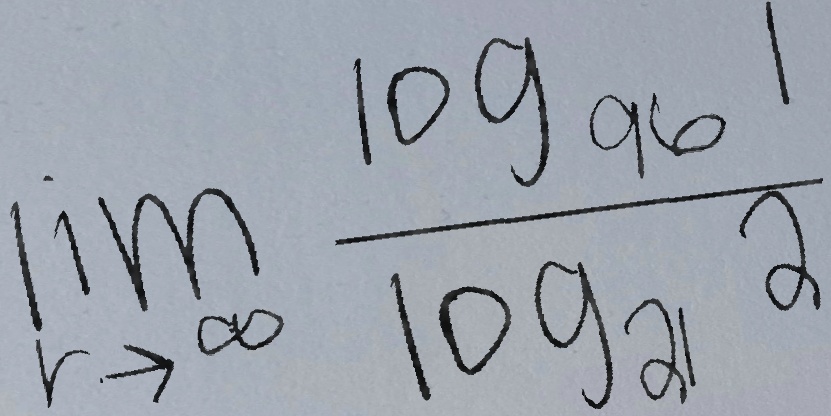 lim r→∞ log₉₆ 1 / log₂₁ 2